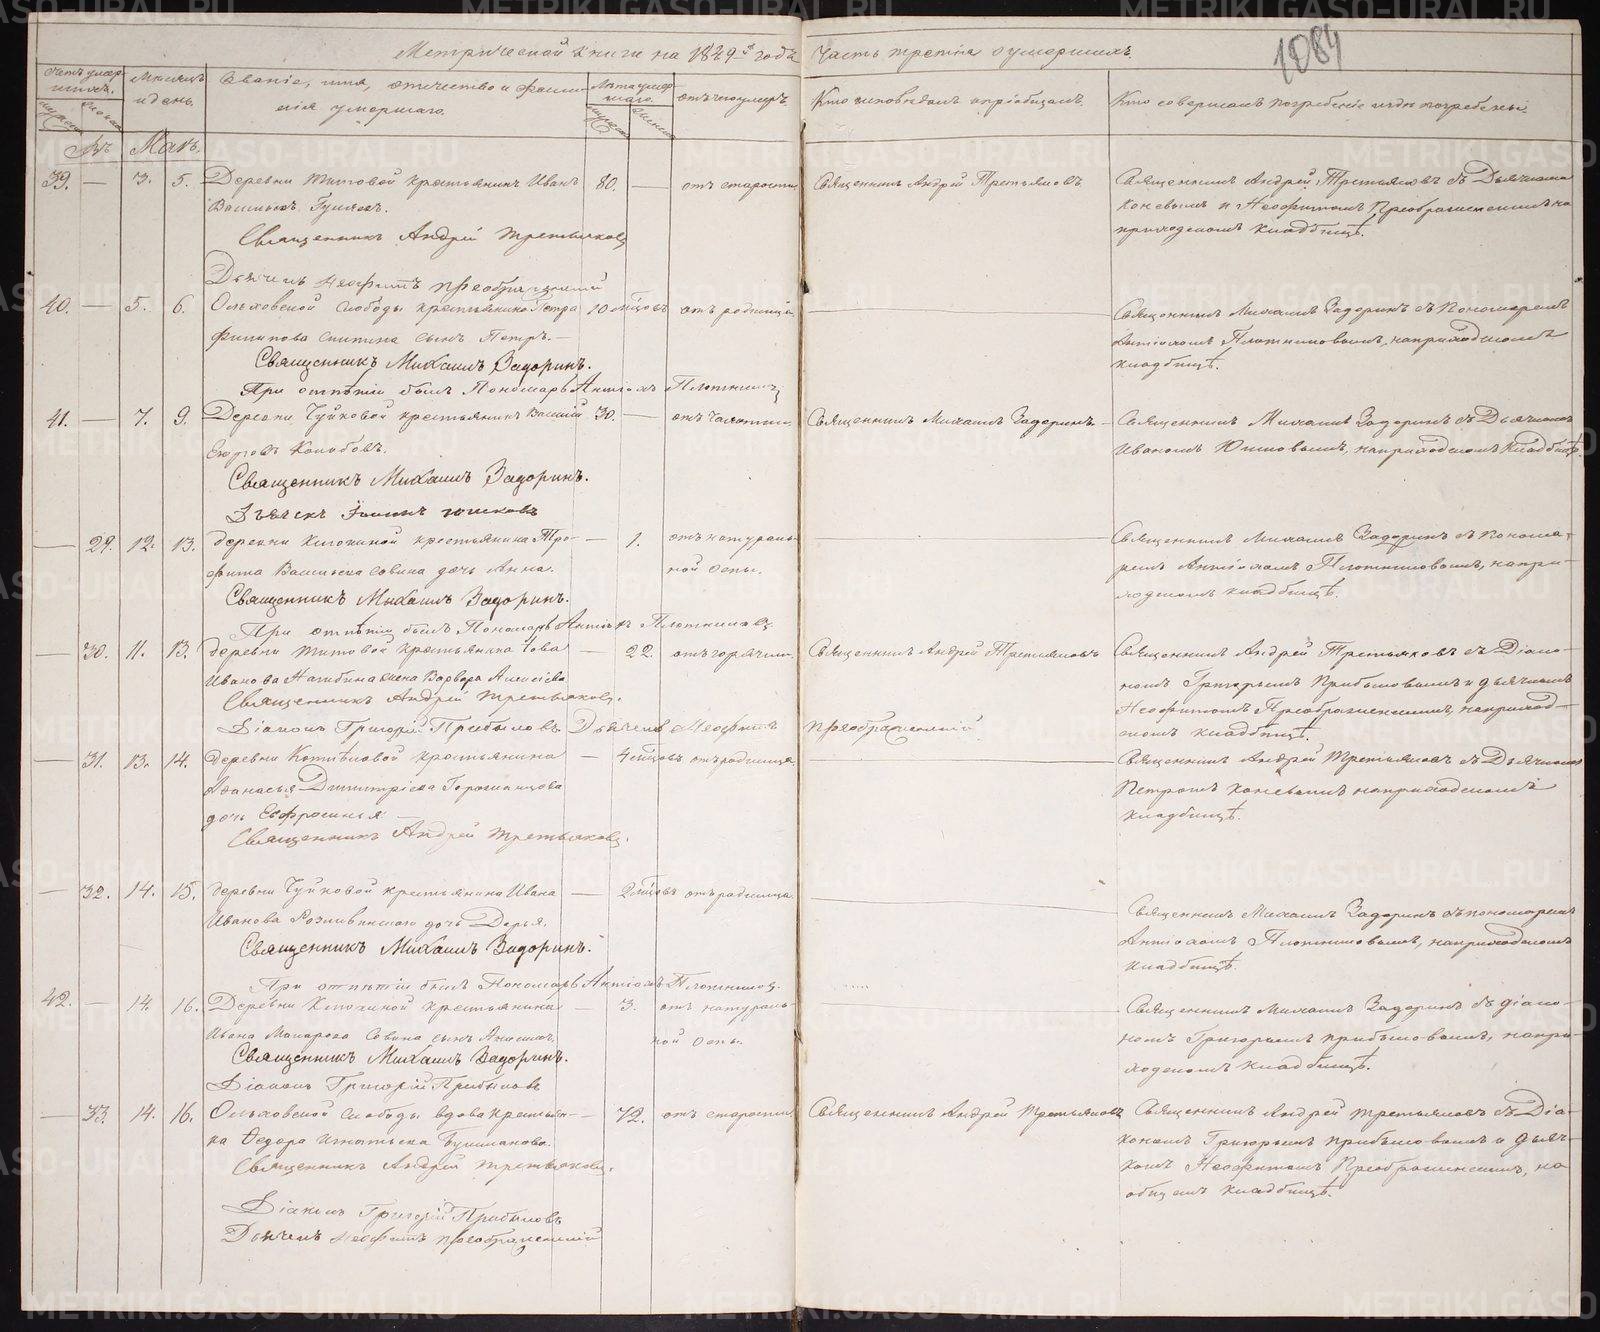 Метрической книги на 1829й годъ
Часть третія о умершихъ.
1084
Счетъ умер-
шихъ.
Мѣсяцъ
и день.
Званіе, имя, отчество и фами-
лія умершаго.
Лѣта умер-
шаго.
отъ чего умеръ.
Кто исповѣдалъ и пріобщалъ.
Кто совершалъ погребеніе и гдѣ погребены.
Въ Маѣ.
39. — 3. 5. Деревни Титовой крестьянинъ Иванъ 80. — отъ старости
Васильевъ
Священникъ Андрей Третьяковъ
Дьячекъ Неофитъ Преображенскій
Священникъ Андрей Третьяковъ
Священникъ Андрей Третьяковъ съ Дьячками
Коневымъ и Неофитомъ Преображенскимъ на
приходскомъ кладбищѣ.
40. — 5. 6. Ольховской слободы крестьянина Петра 10 мѣсцовъ отъ родимца
Филипова сынъ Петръ. —
Священникъ Михаилъ Задоринъ.
При отпѣтіи былъ Пономарь Антіохъ Плотниковъ
Священникъ Михаилъ Задоринъ съ Пономаремъ
Антіохомъ Плотниковымъ, на приходскомъ
кладбищѣ.
41. — 7. 9. Деревни Чуйковой крестьянинъ Василій 30. — отъ чахотки.
Егоровъ
Священникъ Михаилъ Задоринъ.
Дьячекъ Іоаннъ Юшковъ
Священникъ Михаилъ Задоринъ
Священникъ Михаилъ Задоринъ съ Дьячкомъ
Иваномъ Юшковымъ, на приходскомъ кладбищѣ.
— 29. 12. 13. деревни крестьянина Тро- — 1. отъ натураль-
фима Васильева Савина дочь Анна. ной оспы.
Священникъ Михаилъ Задоринъ.
При отпѣтіи былъ Пономарь Антіохъ Плотниковъ
Священникъ Михаилъ Задоринъ съ Понома-
ремъ Антіохомъ Плотниковымъ, на при-
ходскомъ кладбищѣ.
— 30. 11. 13. деревни Титовой крестьянина Іова — 22. отъ горячки.
Иванова Нагибина жена Варвара Алексіева
Священникъ Андрей Третьяковъ.
Діаконъ Григорій Прибыловъ Дьячекъ Неофитъ Преображенскій
Священникъ Андрей Третьяковъ
Священникъ Андрей Третьяковъ съ Діако-
номъ Григорьемъ Прибыловымъ и дьячкомъ
Неофитомъ Преображенскимъ, на приход-
скомъ кладбищѣ.
— 31. 13. 14. деревни крестьянина — 4 мѣсцовъ отъ родимца
Афанасья Димитріева
дочь Евфросинья —
Священникъ Андрей Третьяковъ.
Священникъ Андрей Третьяковъ съ Дьячкомъ
Петромъ Коневымъ на приходскомъ
кладбищѣ.
— 32. 14. 15. деревни Чуйковой крестьянина Ивана — 2 мѣсцовъ отъ родимца
Иванова дочь Дарья.
Священникъ Михаилъ Задоринъ.
При отпѣтіи былъ Пономарь Антіохъ Плотниковъ.
Священникъ Михаилъ Задоринъ съ пономаремъ
Антіохомъ Плотниковымъ, на приходскомъ
кладбищѣ.
42. — 14. 16. Деревни крестьянина — 3. отъ натураль-
Ивана Макарова Савина сынъ ной оспы.
Священникъ Михаилъ Задоринъ.
Діаконъ Григорій Прибыловъ
Священникъ Михаилъ Задоринъ съ діако-
номъ Григорьемъ Прибыловымъ, на при-
ходскомъ кладбищѣ.
— 33. 14. 16. Ольховской слободы вдова крестьян- — 72. отъ старости
ка Ѳедора Игнатьева
Священникъ Андрей Третьяковъ.
Діаконъ Григорій Прибыловъ
Дьячекъ Неофитъ Преображенскій
Священникъ Андрей Третьяковъ
Священникъ Андрей Третьяковъ съ Діа-
кономъ Григорьемъ Прибыловымъ и дьяч-
комъ Неофитомъ Преображенскимъ, на
общемъ кладбищѣ.
METRIKI.GASO-URAL.RU